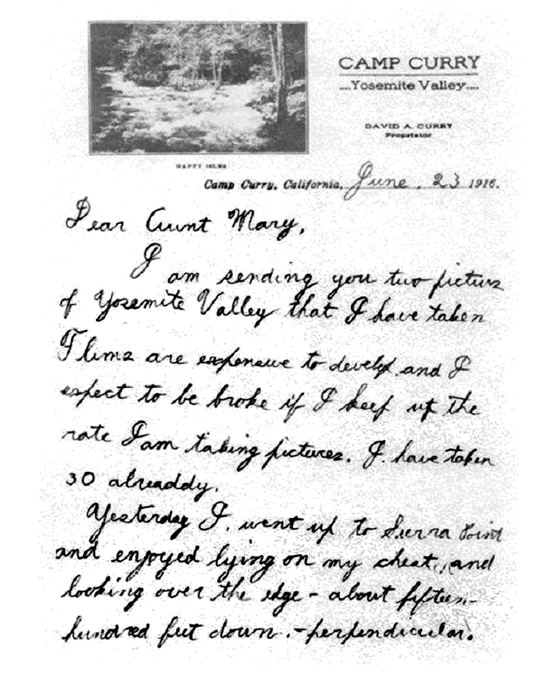 CAMP CURRY
....Yosemite Valley....
DAVID A. CURRY
Proprietor
HAPPY ISLES
Camp Curry, California, June. 23 1916.
Dear Aunt Mary,
I am sending you two picturs
of Yosemite Valley that I have taken
Flims are expensive to develop and I
expect to be broke if I keep up the
rate I am taking pictures. I have taken
30 alreaddy.
Yesterday I went up to Sierra Point
and enjoyed lying on my chest, and
looking over the edge - about fifteen-
hundred feet down. - perpendicular.